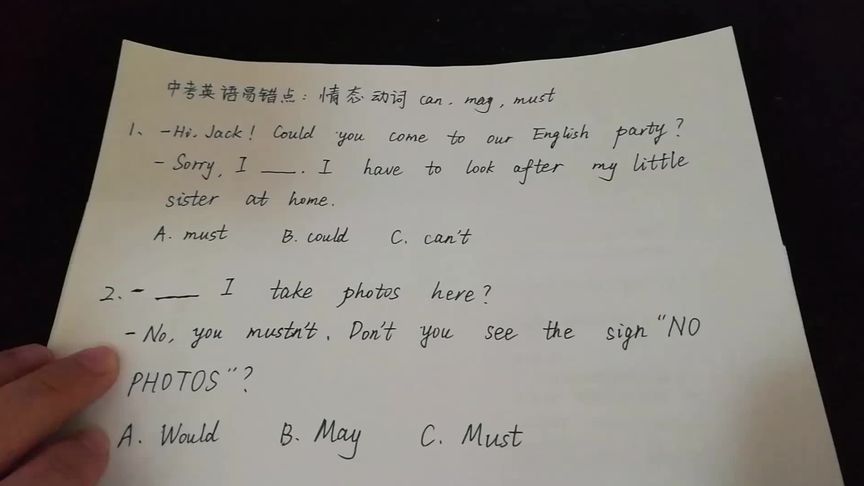 中考英语易错点：情态动词 can. may, must
1、-Hi, Jack! Could you come to our English party?
- Sorry, I ___. I have to look after my little
sister at home.
A. must B. could C. can't
2. - ___ I take photos here?
- No, you mustn't. Don't you see the sign "NO
PHOTOS"?
A. Would B. May C. Must